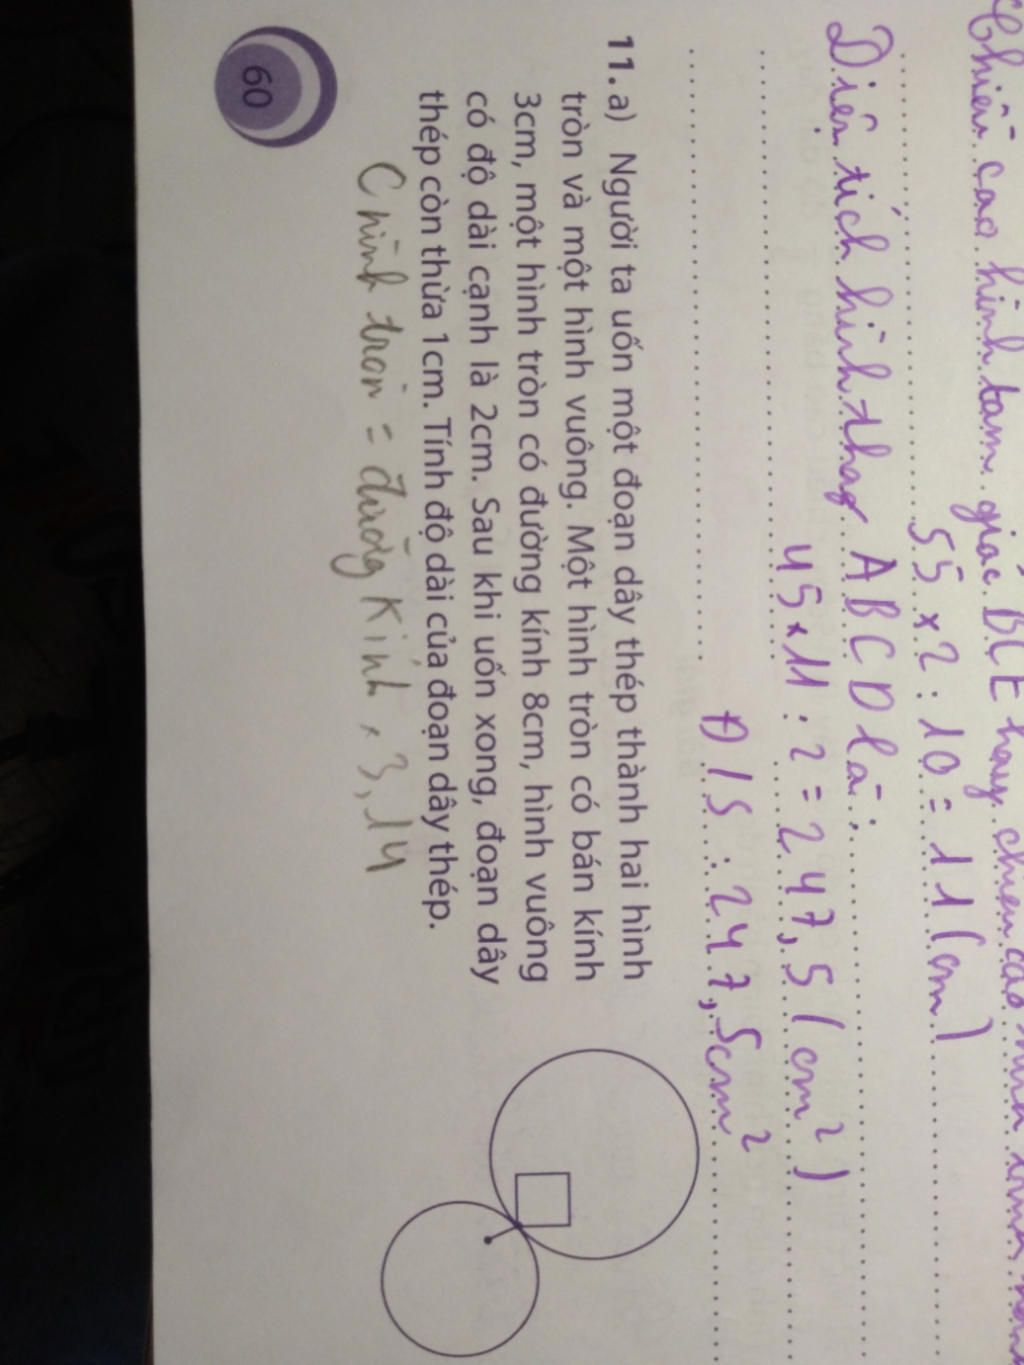 Chiều cao hình tam giác BCE hay chiều cao hình
55 x 2 : 10 = 11 (cm)
Diện tích hình thag ABCD là :
45 x 11 : 2 = 247,5 (cm²)
Đ/S : 247,5cm²
11. a) Người ta uốn một đoạn dây thép thành hai hình
tròn và một hình vuông. Một hình tròn có bán kính
3cm, một hình tròn có đường kính 8cm, hình vuông
có độ dài cạnh là 2cm. Sau khi uốn xong, đoạn dây
thép còn thừa 1cm. Tính độ dài của đoạn dây thép.
C hình tròn = đường kính x 3,14
60